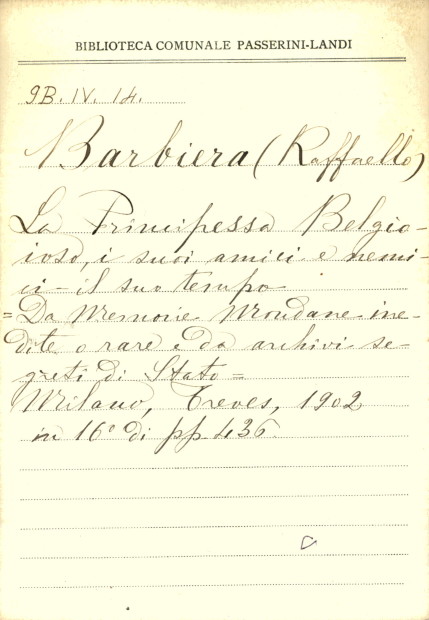 BIBLIOTECA COMUNALE PASSERINI-LANDI
9B. IV. 14.
Barbiera (Raffaello)
La Principessa Belgio-
ioso, i suoi amici e nemi-
ci - il suo tempo
= Da Memorie Mondane ine-
dite o rare e da archivi se-
greti di Stato =
Milano, Treves, 1902
in 16° di pp. 436.